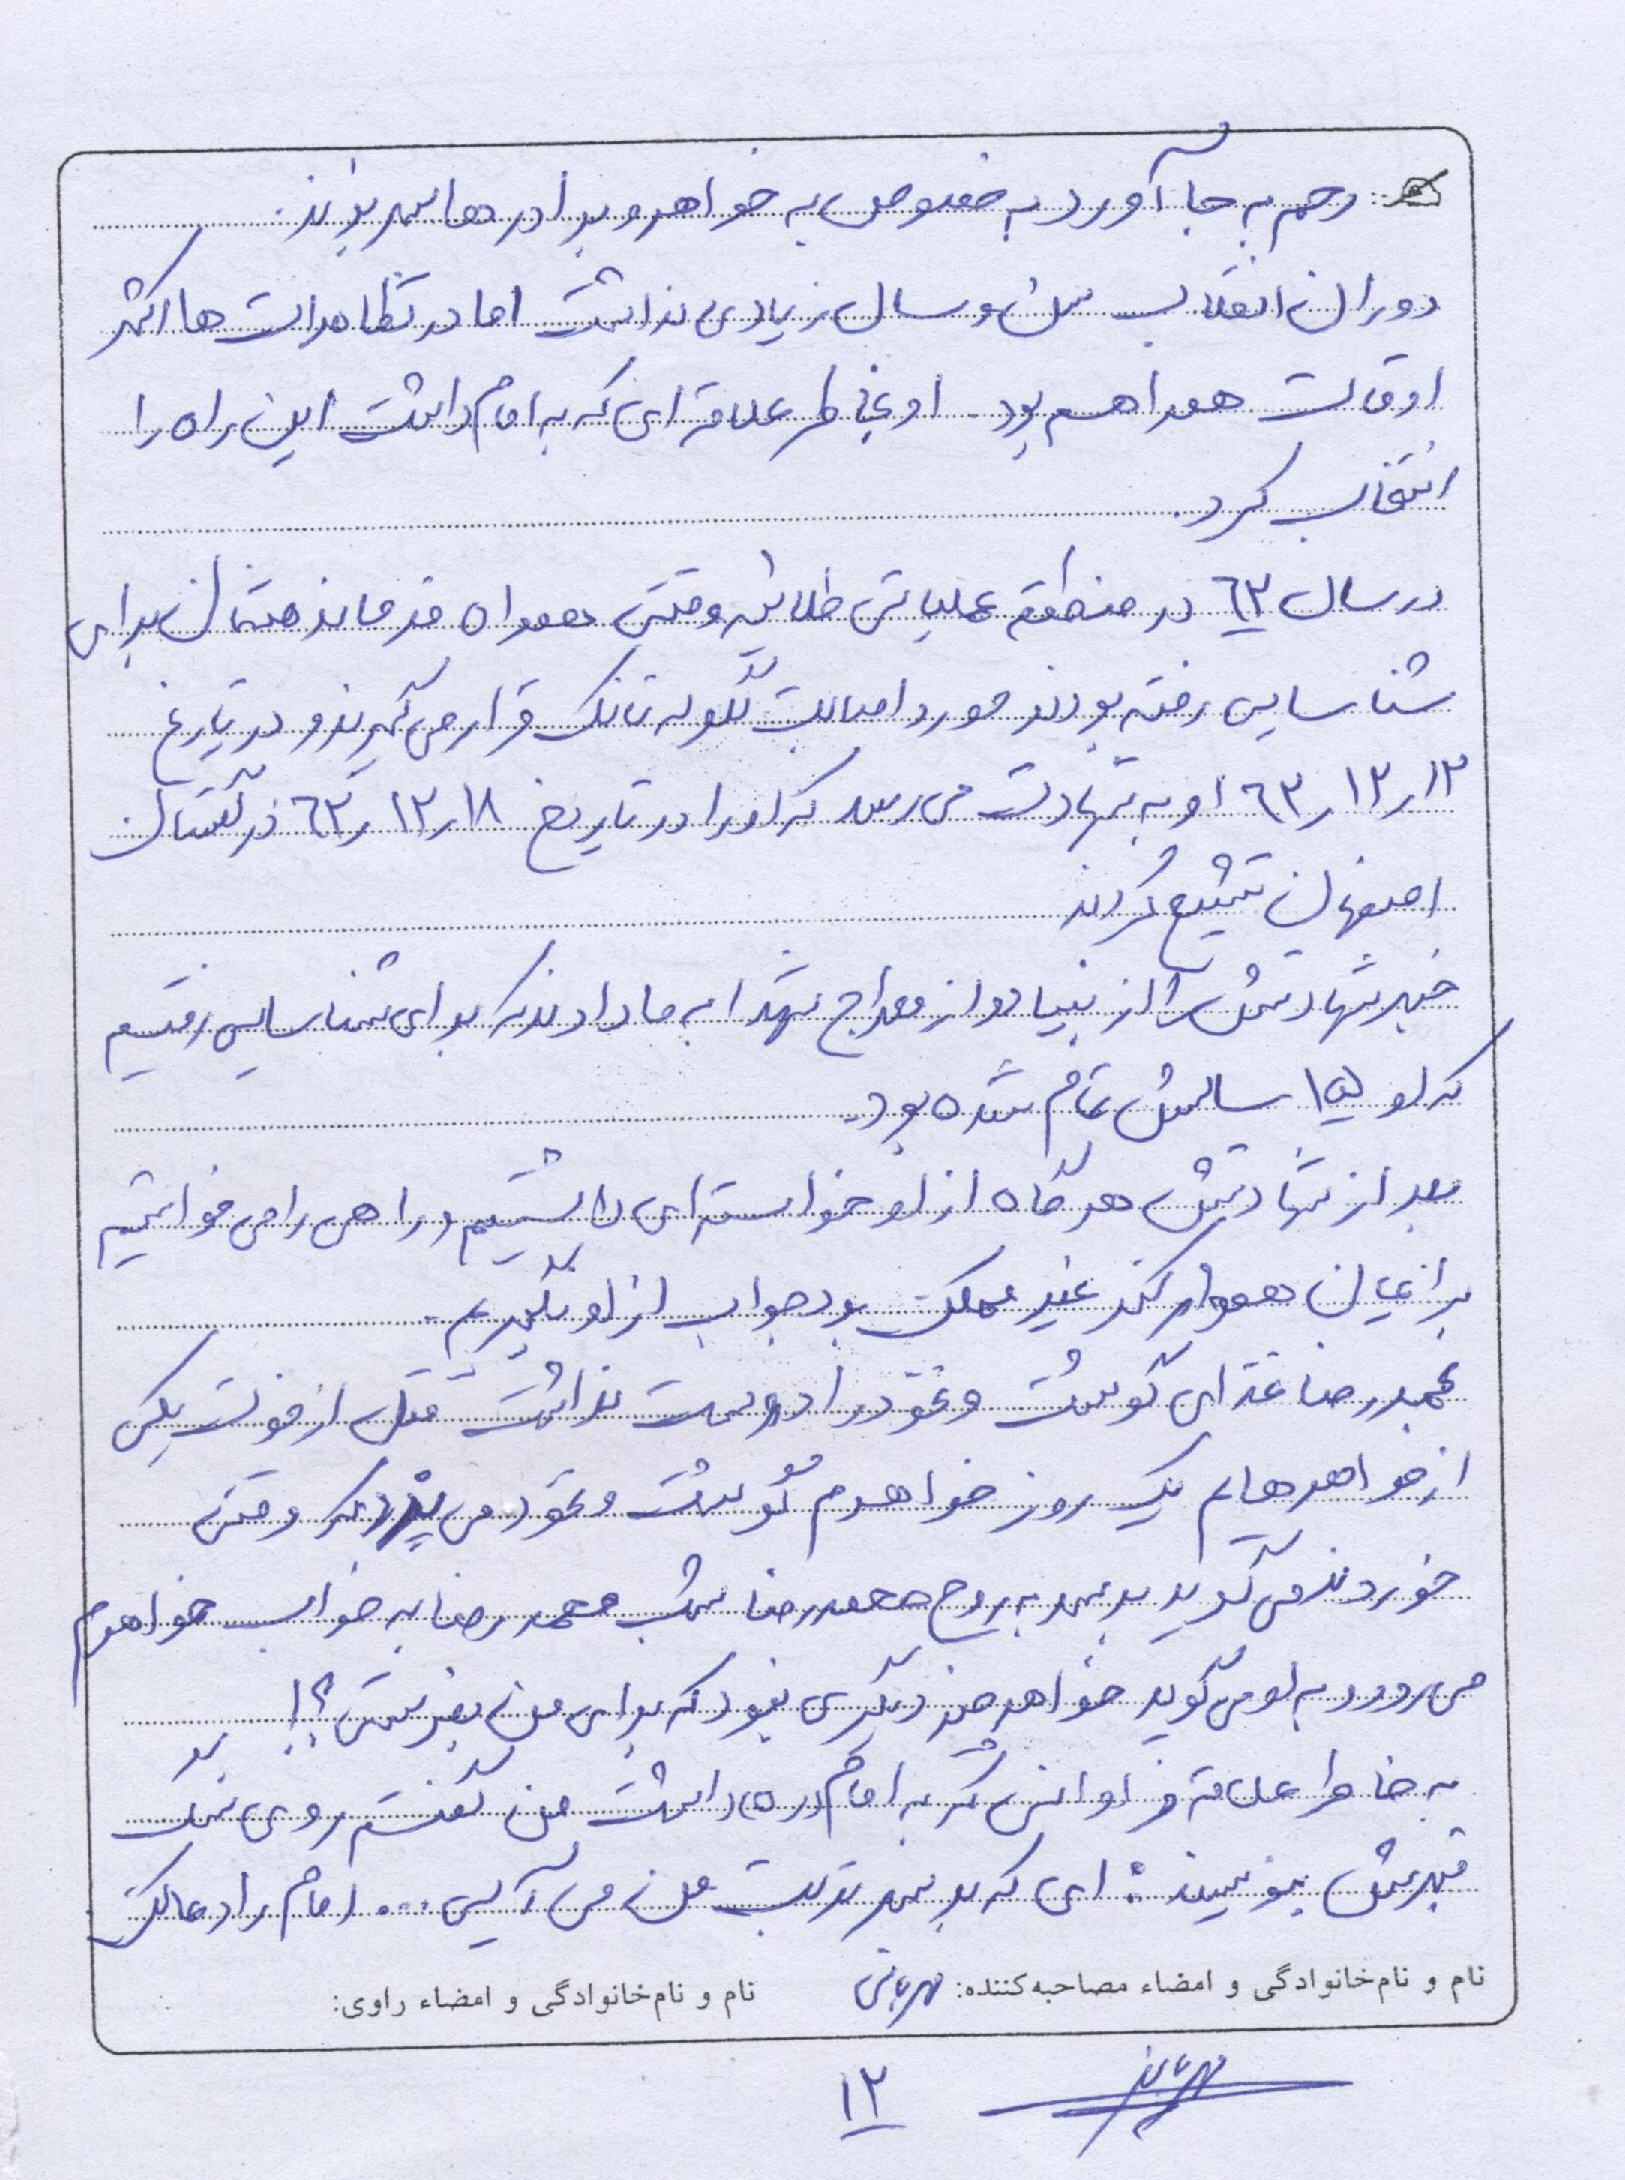 رحم به جا آورد به خصوص به خواهر و برادرها سر بزنند.
دوران انقلاب سن و سال زیادی نداشت اما در تظاهرات ها اکثر
اوقات همراهم بود. او بخاطر علاقه ای که به امام داشت این راه را
انتخاب کرد.
در سال ٦٣ در منطقه عملیاتی طلائیه وقتی همراه فرمانده هشان برای
شناسایی رفته بودند مورد اصابت گلوله تانک قرار می گیرند و در تاریخ
١٢ر١٢ر٦٣ او به شهادت می رسد که او را در تاریخ ١٨ر١٢ر٦٣ در گلستان
اصفهان تشییع کردند
خبر شهادتش را از بنیاد و از معراج شهدا به ما دادند که برای شناسایی رفتیم
که او ١٥ سالش تمام شده بود.
بعد از شهادتش هر گاه از او خواسته ای داشتیم و راهی را می خواستیم
برایمان هموار کند غیر ممکن بود جواب از او نگیریم.
محمدرضا غذای گوشت و نخود را دوست نداشت قبل از فوت یکی
از خواهرهایم یک روز خواهرم گوشت و نخود می پزد که وقتی
خوردند می گوید برسد به روح محمدرضا شب محمدرضا به خواب خواهرم
می رود و به او می گوید خواهر چیز دیگری نبود که برای من بفرستی؟!
به خاطر علاقه فراوانش که به امام (ره) داشت من گفتم روی سنگ
قبرش بنویسند: ای که بر سر تربت من می آیی ... امام را دعا کن
نام و نام‌خانوادگی و امضاء مصاحبه‌کننده: مهربانی نام و نام‌خانوادگی و امضاء راوی:
١٢